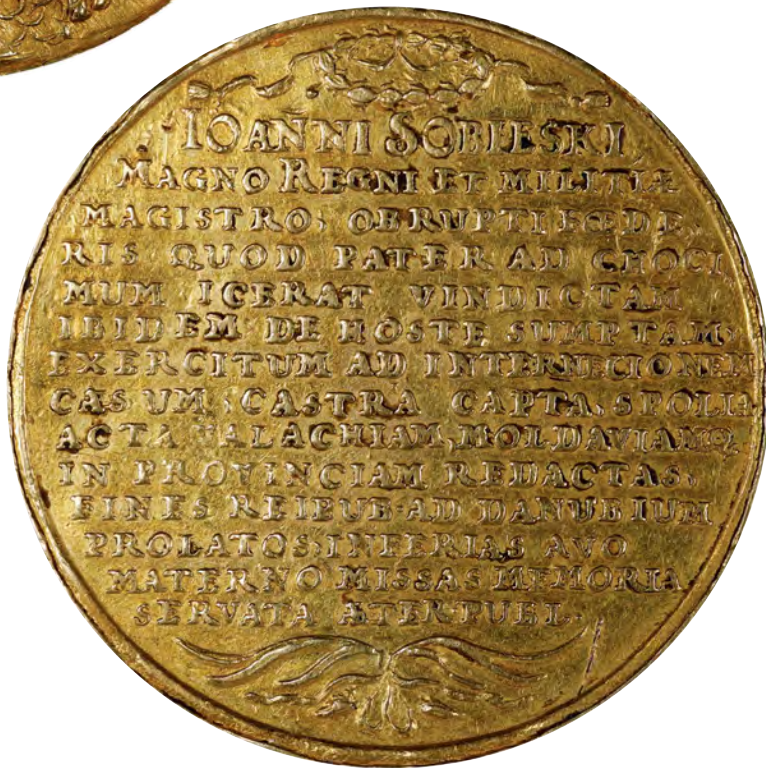 IOANNI SOBIESKI
MAGNO REGNI ET MILITIÆ
MAGISTRO, OBRUPTI FŒDE,
RIS QUOD PATER AD CHOCI
MUM ICERAT VINDICTAM
IBIDEM DE HOSTE SUMPTAM,
EXERCITUM AD INTERNECIONEM
CÆSUM, CASTRA CAPTA, SPOLI:
ACTA VALACHIAM, MOLDAVIAMQ
IN PROVINCIAM REDACTAS,
FINES REIPUB: AD DANUBIUM
PROLATOS: INFERIAS AVO
MATERNO MISSAS MEMORIA
SERVATA ÆTER PUBL.